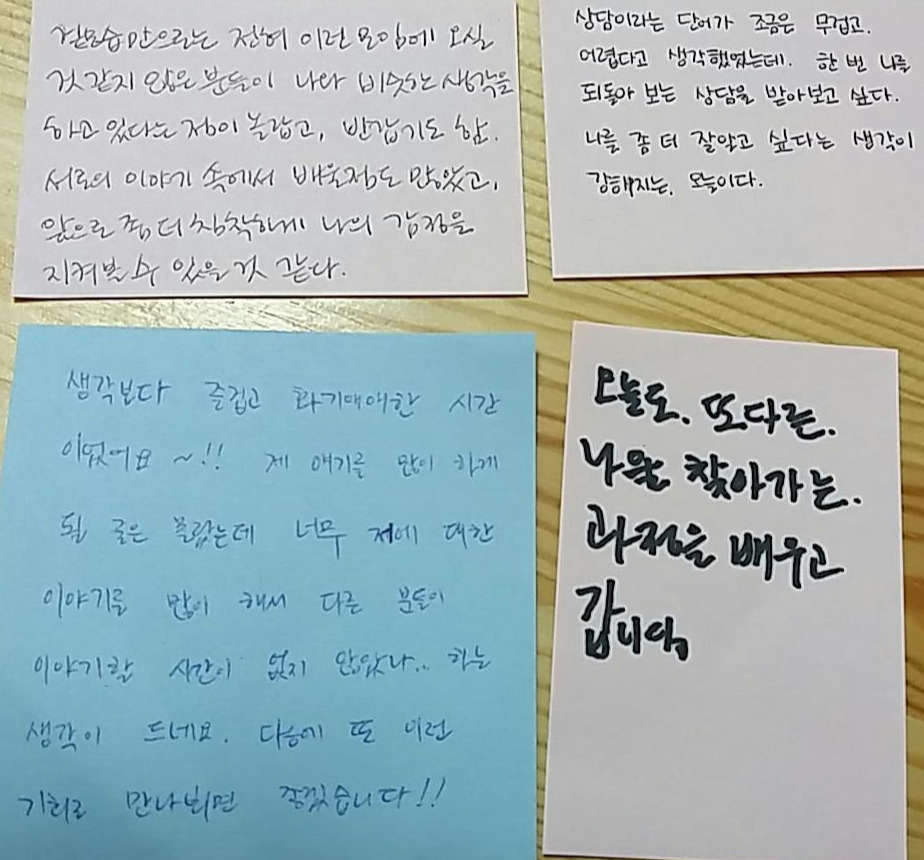 겉모습만으로는 전혀 이런 모임에 오실
것 같지 않은 분들이 나와 비슷한 생각을
하고 있다는 점이 놀랍고, 반갑기도 함.
서로의 이야기 속에서 배울점도 많았고,
앞으로 좀 더 침착하게 나의 감정을
지켜볼 수 있을 것 같다.
상담이라는 단어가 조금은 무겁고.
어렵다고 생각했었는데. 한 번 나를
되돌아 보는 상담을 받아보고 싶다.
나를 좀 더 잘알고 싶다는 생각이
강해지는, 오늘이다.
생각보다 즐겁고 화기애애한 시간
이었어요 ~!! 제 얘기를 많이 하게
될 줄은 몰랐는데 너무 저에 대한
이야기를 많이 해서 다른 분들이
이야기할 시간이 없지 않았나.. 하는
생각이 드네요. 다음에 또 이런
기회로 만나뵈면 좋겠습니다!!
오늘도. 또다른.
나을 찾아가는.
과정을 배우고
갑니다,